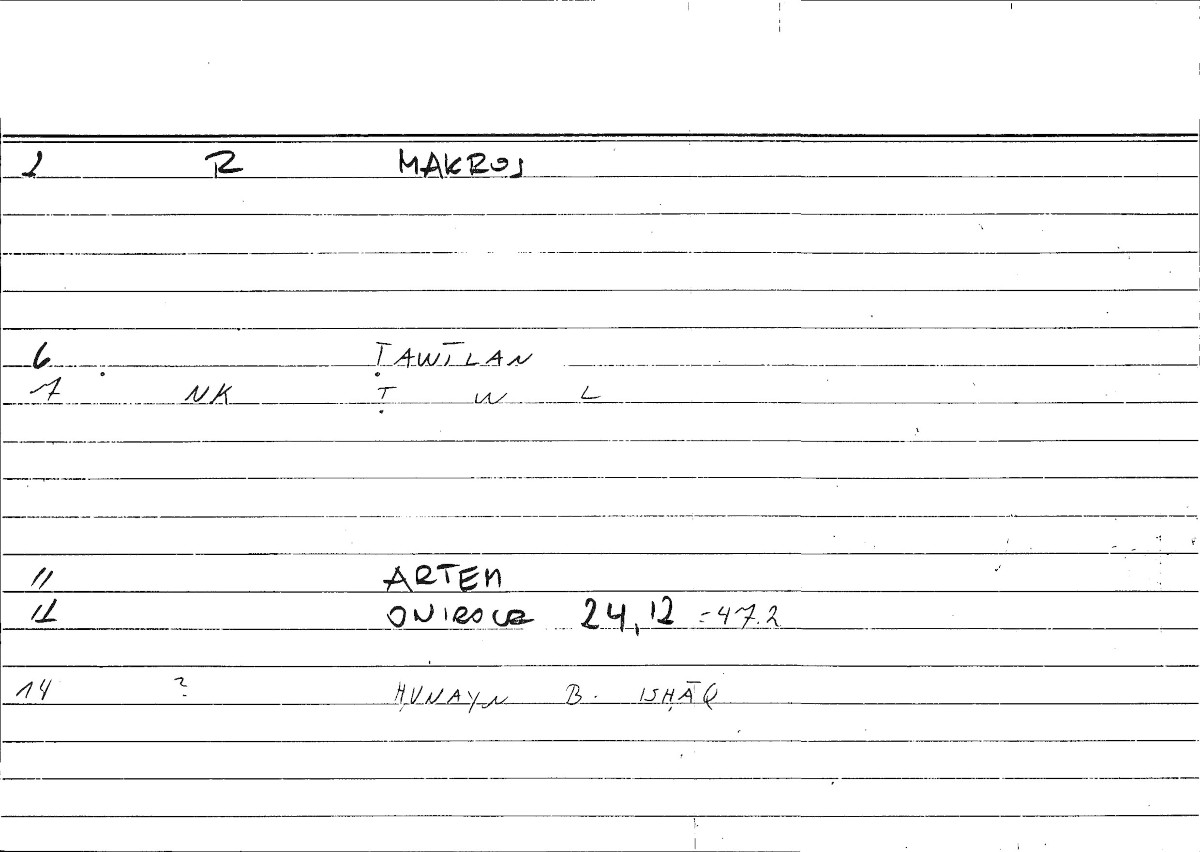 2 R MAKROS
6 ṬAWĪLAN
7 NK Ṭ W L
11 ARTEM
12 ONIROCR 24,12 =47.2
14 ? ḤUNAYN B. ISḤĀQ